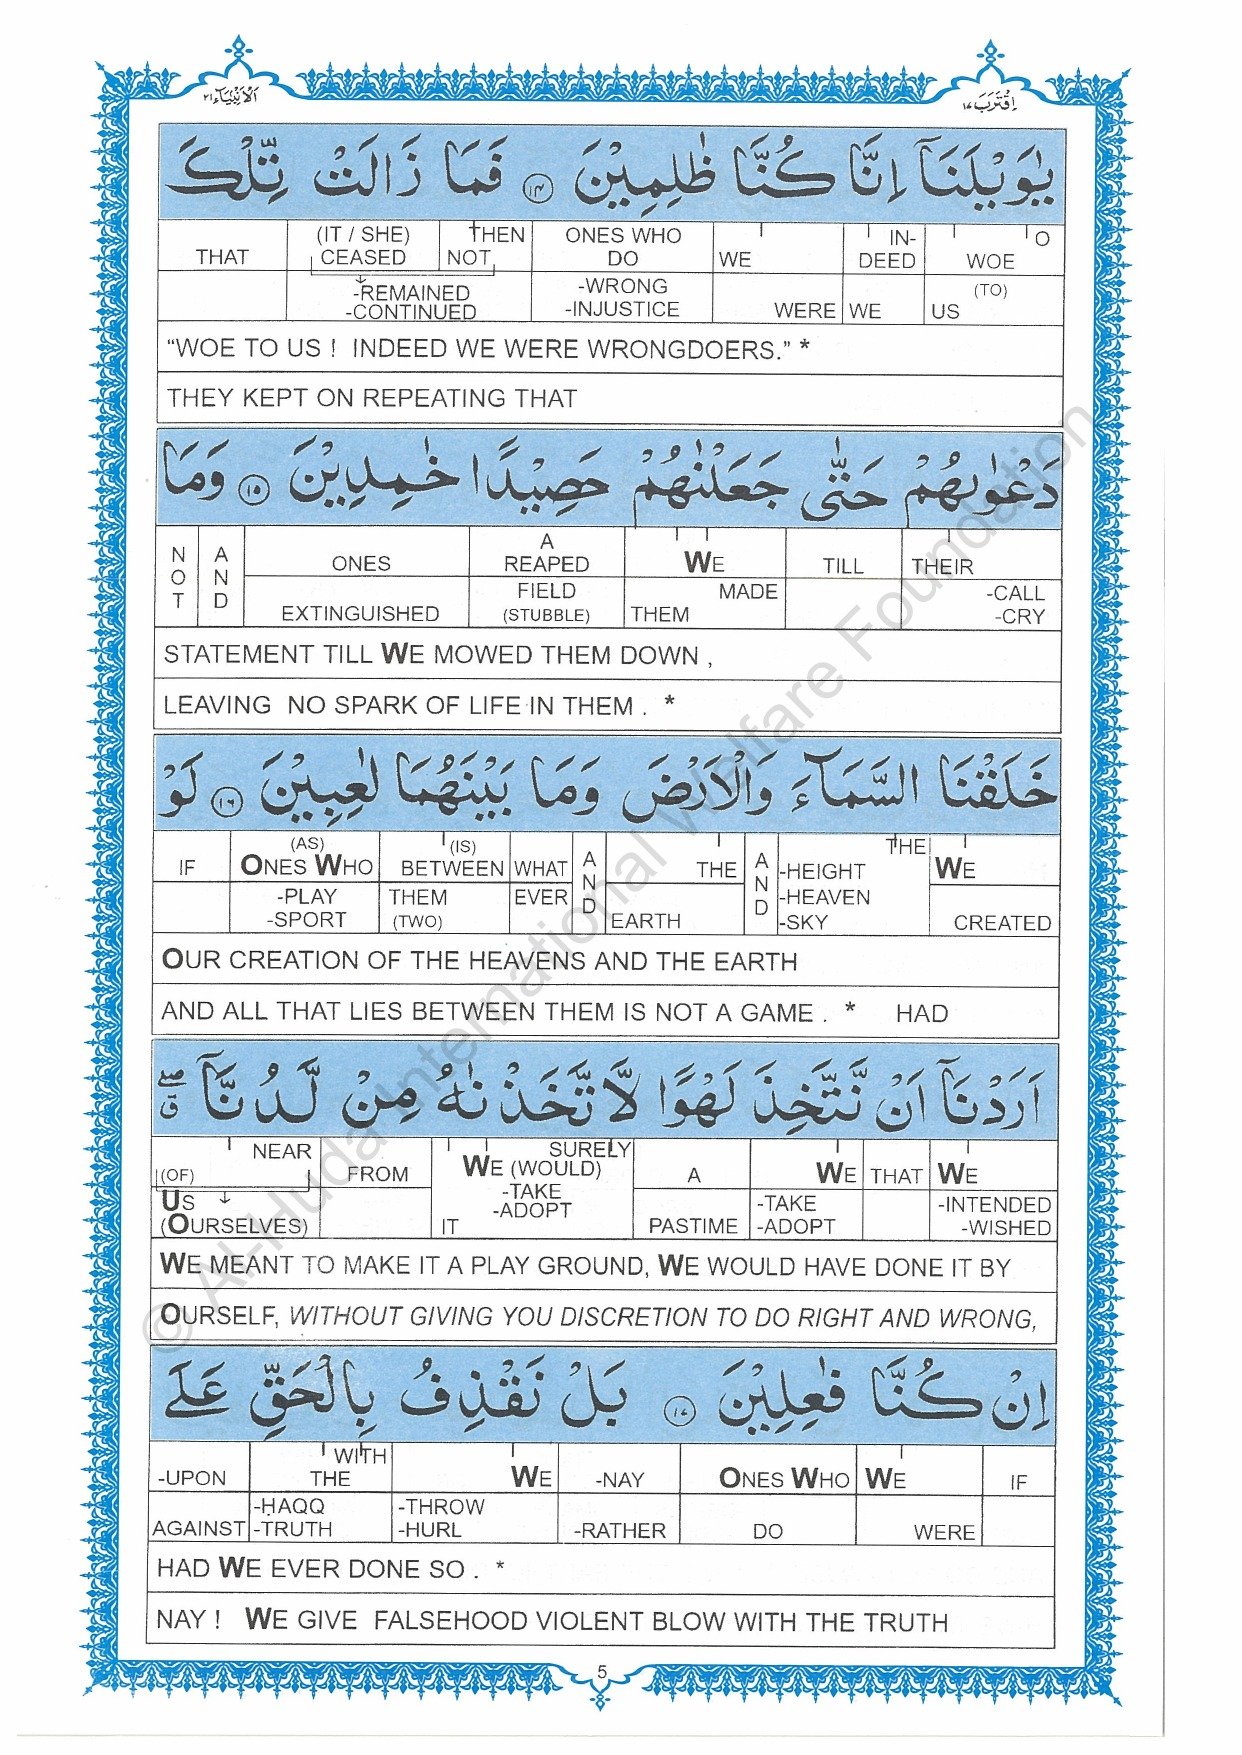 اَلْاَنْۢبِيَآء ٢١
اِقْتَرَبَ ١٧
يٰوَيْلَنَآ اِنَّا كُنَّا ظٰلِمِيْنَ ١٤ فَمَا زَالَتْ تِّلْكَ
THAT (IT / SHE) CEASED THEN NOT ONES WHO DO WE IN-DEED O WOE
-REMAINED -CONTINUED -WRONG -INJUSTICE WERE WE (TO) US
“WOE TO US ! INDEED WE WERE WRONGDOERS.” *
THEY KEPT ON REPEATING THAT
دَعْوٰىهُمْ حَتّٰى جَعَلْنٰهُمْ حَصِيْدًا خٰمِدِيْنَ ١٥ وَمَا
NOT AND ONES A REAPED WE TILL THEIR
EXTINGUISHED FIELD (STUBBLE) MADE THEM -CALL -CRY
STATEMENT TILL WE MOWED THEM DOWN ,
LEAVING NO SPARK OF LIFE IN THEM . *
خَلَقْنَا السَّمَآءَ وَالْاَرْضَ وَمَا بَيْنَهُمَا لٰعِبِيْنَ ١٦ لَوْ
IF (AS) ONES WHO (IS) BETWEEN WHAT AND THE AND THE -HEIGHT WE
-PLAY -SPORT THEM (TWO) EVER EARTH -HEAVEN -SKY CREATED
OUR CREATION OF THE HEAVENS AND THE EARTH
AND ALL THAT LIES BETWEEN THEM IS NOT A GAME . * HAD
اَرَدْنَآ اَنْ نَّتَّخِذَ لَهْوًا لَّاتَّخَذْنٰهُ مِنْ لَّدُنَّآ ۖ ق
NEAR (OF) FROM SURELY WE (WOULD) -TAKE -ADOPT A WE THAT WE
US (OURSELVES) IT PASTIME -TAKE -ADOPT -INTENDED -WISHED
WE MEANT TO MAKE IT A PLAY GROUND, WE WOULD HAVE DONE IT BY
OURSELF, WITHOUT GIVING YOU DISCRETION TO DO RIGHT AND WRONG,
اِنْ كُنَّا فٰعِلِيْنَ ١٧ بَلْ نَقْذِفُ بِالْحَقِّ عَلَى
-UPON WITH THE WE -NAY ONES WHO WE IF
AGAINST -ḤAQQ -TRUTH -THROW -HURL -RATHER DO WERE
HAD WE EVER DONE SO . *
NAY ! WE GIVE FALSEHOOD VIOLENT BLOW WITH THE TRUTH
5
© Al-Huda International Welfare Foundation